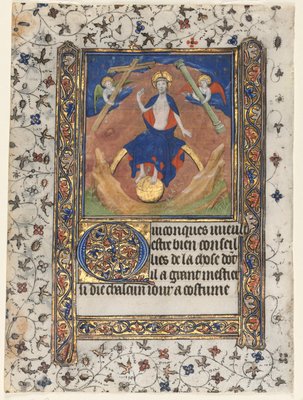 Quiconques uieult
estre bien conseil
lies de la chose dōt
il a grant mestier
si die chascun iour a costume